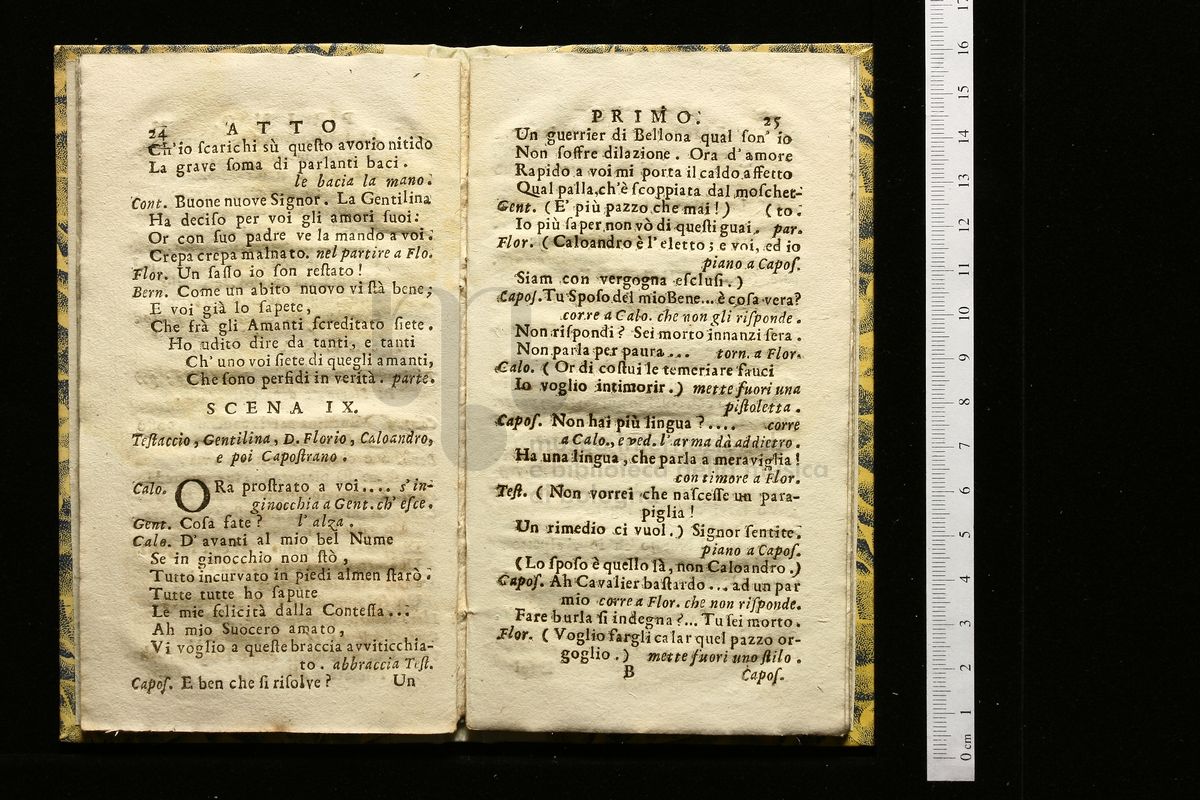 24 ATTO
Ch'io ſcarichi sù queſto avorio nitido
La grave ſoma di parlanti baci.
le bacia la mano.
Cont. Buone nuove Signor. La Gentilina
Ha deciſo per voi gli amori ſuoi:
Or con ſuo padre ve la mando a voi.
Crepa crepa malnato. nel partire a Flo.
Flor. Un ſaſſo io ſon reſtato!
Bern. Come un abito nuovo vi ſtà bene;
E voi già lo ſapete,
Che frà gli Amanti ſcreditato ſiete.
Ho udito dire da tanti, e tanti
Ch'uno voi ſiete di quegli amanti,
Che ſono perfidi in verità. parte.
SCENA IX.
Teſtaccio, Gentilina, D. Florio, Caloandro,
e poi Capoſtrano.
Calo. ORa proſtrato a voi.... s'in-
ginocchia a Gent. ch'eſce.
Gent. Coſa fate? l'alza.
Calo. D'avanti al mio bel Nume
Se in ginocchio non ſtò,
Tutto incurvato in piedi almen ſtarò.
Tutte tutte ho ſapute
Le mie felicità dalla Conteſſa...
Ah mio Suocero amato,
Vi voglio a queſte braccia avviticchia-
to. abbraccia Teſt.
Capoſ. E ben che ſi riſolve? Un
PRIMO. 25
Un guerrier di Bellona qual ſon' io
Non ſoffre dilazione. Ora d'amore
Rapido a voi mi porta il caldo affetto
Qual palla, ch'è ſcoppiata dal moſchet-
Gent. (E' più pazzo che mai!) (to.
Io più ſaper non vò di queſti guai. par.
Flor. (Caloandro è l'eletto; e voi, ed io
piano a Capoſ.
Siam con vergogna eſcluſi.)
Capoſ. Tu Spoſo del mio Bene... è coſa vera?
corre a Calo. che non gli riſponde.
Non riſpondi? Sei morto innanzi ſera.
Non parla per paura... torn. a Flor.
Calo. (Or di coſtui le temeriare fauci
Io voglio intimorir.) mette fuori una
piſtoletta.
Capoſ. Non hai più lingua?.... corre
a Calo., e ved. l'arma dà addietro.
Ha una lingua, che parla a meraviglia!
con timore a Flor.
Teſt. (Non vorrei che naſceſſe un para-
piglia!
Un rimedio ci vuol.) Signor ſentite.
piano a Capoſ.
(Lo ſpoſo è quello là, non Caloandro.)
Capoſ. Ah Cavalier baſtardo... ad un par
mio corre a Flor. che non riſponde.
Fare burla ſi indegna?... Tu ſei morto.
Flor. (Voglio fargli calar quel pazzo or-
goglio.) mette fuori uno ſtilo.
B Capoſ.
0 cm 1 2 3 4 5 6 7 8 9 10 11 12 13 14 15 16 17